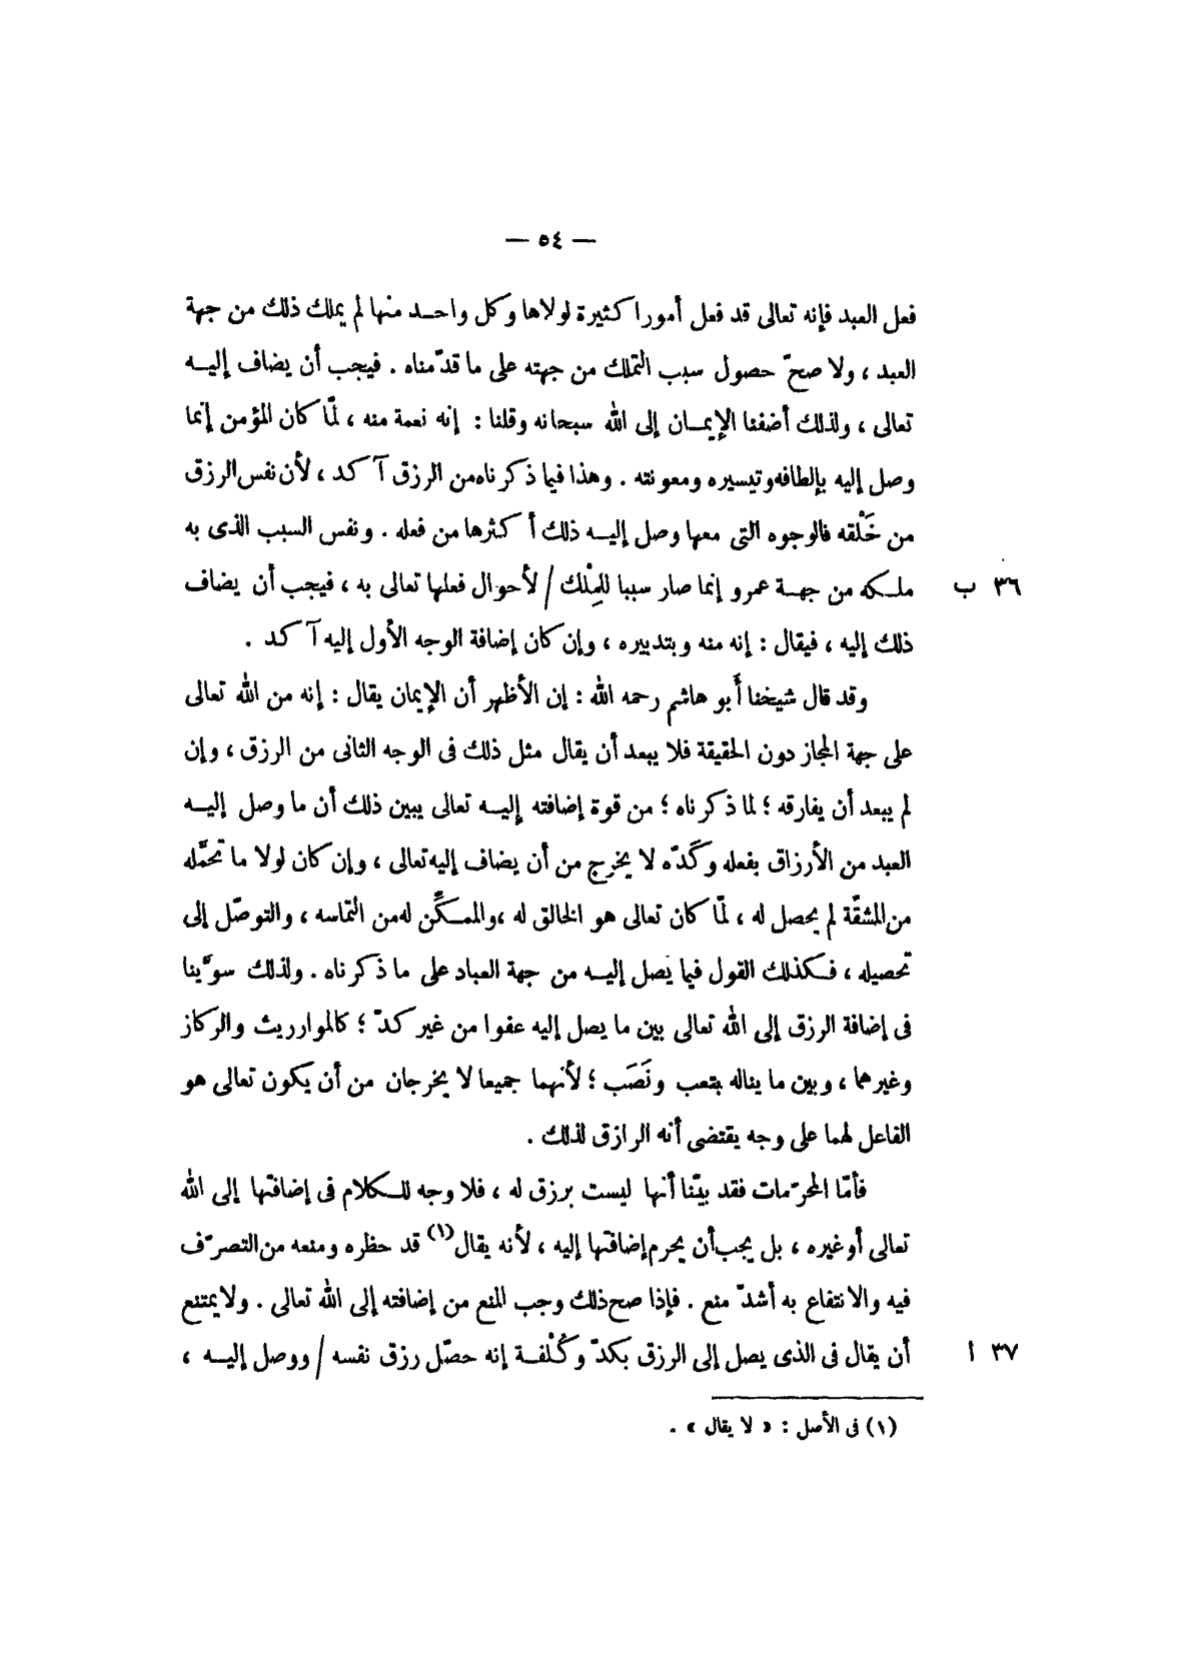 — ٥٤ —
فعل العبد فإنه تعالى قد فعل أمورا كثيرة لولاها وكل واحد منها لم يملك ذلك من جهة
العبد ، ولا صحّ حصول سبب التملك من جهته على ما قدّمناه . فيجب أن يضاف إليه
تعالى ، ولذلك أضفنا الإيمان إلى الله سبحانه وقلنا : إنه نعمة منه ، لمّا كان المؤمن إنما
وصل إليه بإلطافه وتيسيره ومعونته . وهذا فيما ذكرناه من الرزق آكد ، لأن نفس الرزق
من خَلْقه فالوجوه التى معها وصل إليه ذلك أكثرها من فعله . ونفس السبب الذى به
ملكه من جهة عمرو إنما صار سببا للمِلْك / لأحوال فعلها تعالى به ، فيجب أن يضاف
٣٦ ب
ذلك إليه ، فيقال : إنه منه وبتدبيره ، وإن كان إضافة الوجه الأول إليه آكد .
وقد قال شيخنا أبو هاشم رحمه الله : إن الأظهر أن الإيمان يقال : إنه من الله تعالى
على جهة المجاز دون الحقيقة فلا يبعد أن يقال مثل ذلك فى الوجه الثانى من الرزق ، وإن
لم يبعد أن يفارقه ؛ لما ذكرناه ؛ من قوة إضافته إليه تعالى يبين ذلك أن ما وصل إليه
العبد من الأرزاق بفعله وكَدّه لا يخرج من أن يضاف إليه تعالى ، وإن كان لولا ما تحمَّله
من المشقّة لم يحصل له ، لمّا كان تعالى هو الخالق له ، والممكِّن له من التماسه ، والتوصّل إلى
تحصيله ، فكذلك القول فيما يَصل إليه من جهة العباد على ما ذكرناه . ولذلك سوَّينا
فى إضافة الرزق إلى الله تعالى بين ما يصل إليه عفوا من غير كدّ ؛ كالمواريث والركاز
وغيرهما ، وبين ما يناله بتعب ونَصَب ؛ لأنهما جميعا لا يخرجان من أن يكون تعالى هو
الفاعل لهما على وجه يقتضى أنه الرازق لذلك .
فأمّا المحرّمات فقد بيّنا أنها ليست برزق له ، فلا وجه للكلام فى إضافتها إلى الله
تعالى أو غيره ، بل يجب أن يحرم إضافتها إليه ، لأنه يقال (١) قد حظره ومنعه من التصرّف
فيه والانتفاع به أشدّ منع . فإذا صح ذلك وجب المنع من إضافته إلى الله تعالى . ولا يمتنع
أن يقال فى الذى يصل إلى الرزق بكدّ وكُلْفة إنه حصّل رزق نفسه / ووصل إليه ،
٣٧ ا
(١) فى الأصل : « لا يقال » .